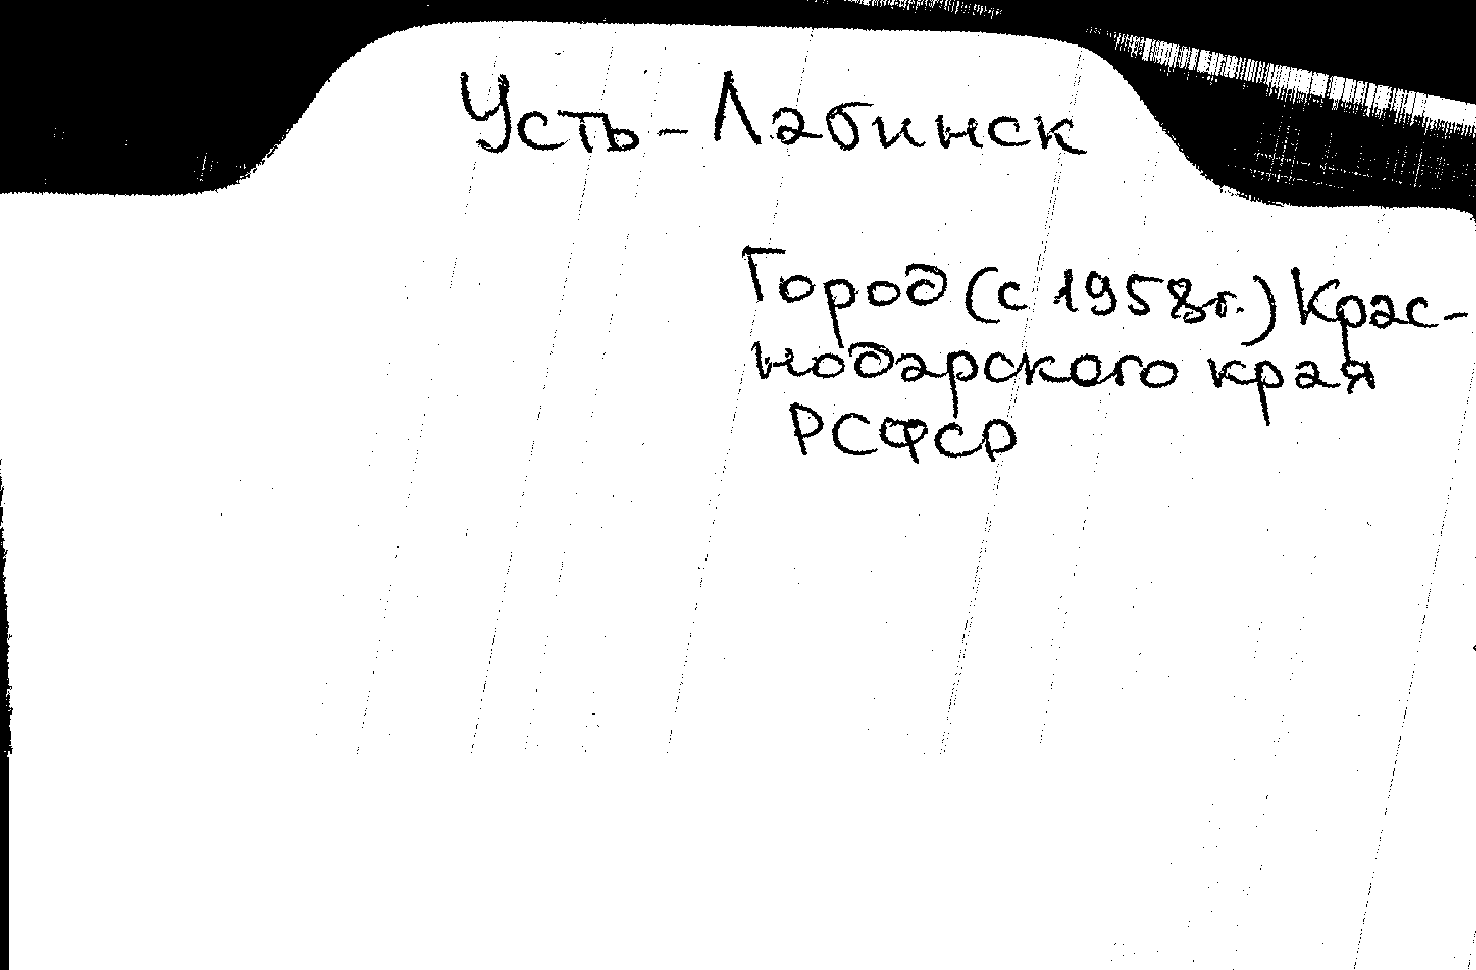 Усть-Лабинск
Город (с 1958г.) Крас-
нодарского края
РСФСР